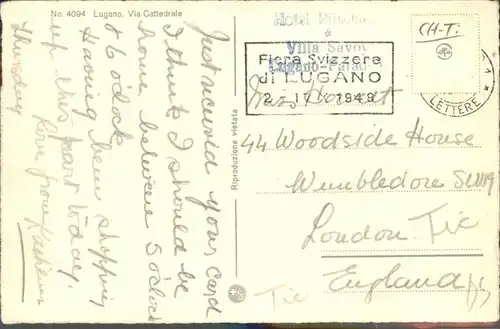 No. 4094 Lugano, Via Cattedrale
Just received your card
I think I should be
home between 5 o'clock
& 6 o'clock
Having been shopping
up this part today.
Love from
Thursday
Riproduzione vietata
Hotel
Villa Savoy
Lugano-Paradiso
Fiera Svizzera
di LUGANO
2 - 17. X. 1948
LETTERE
CH-Ti
Miss
44 Woodside House
Wimbledon SW19
London Tic
Tic England